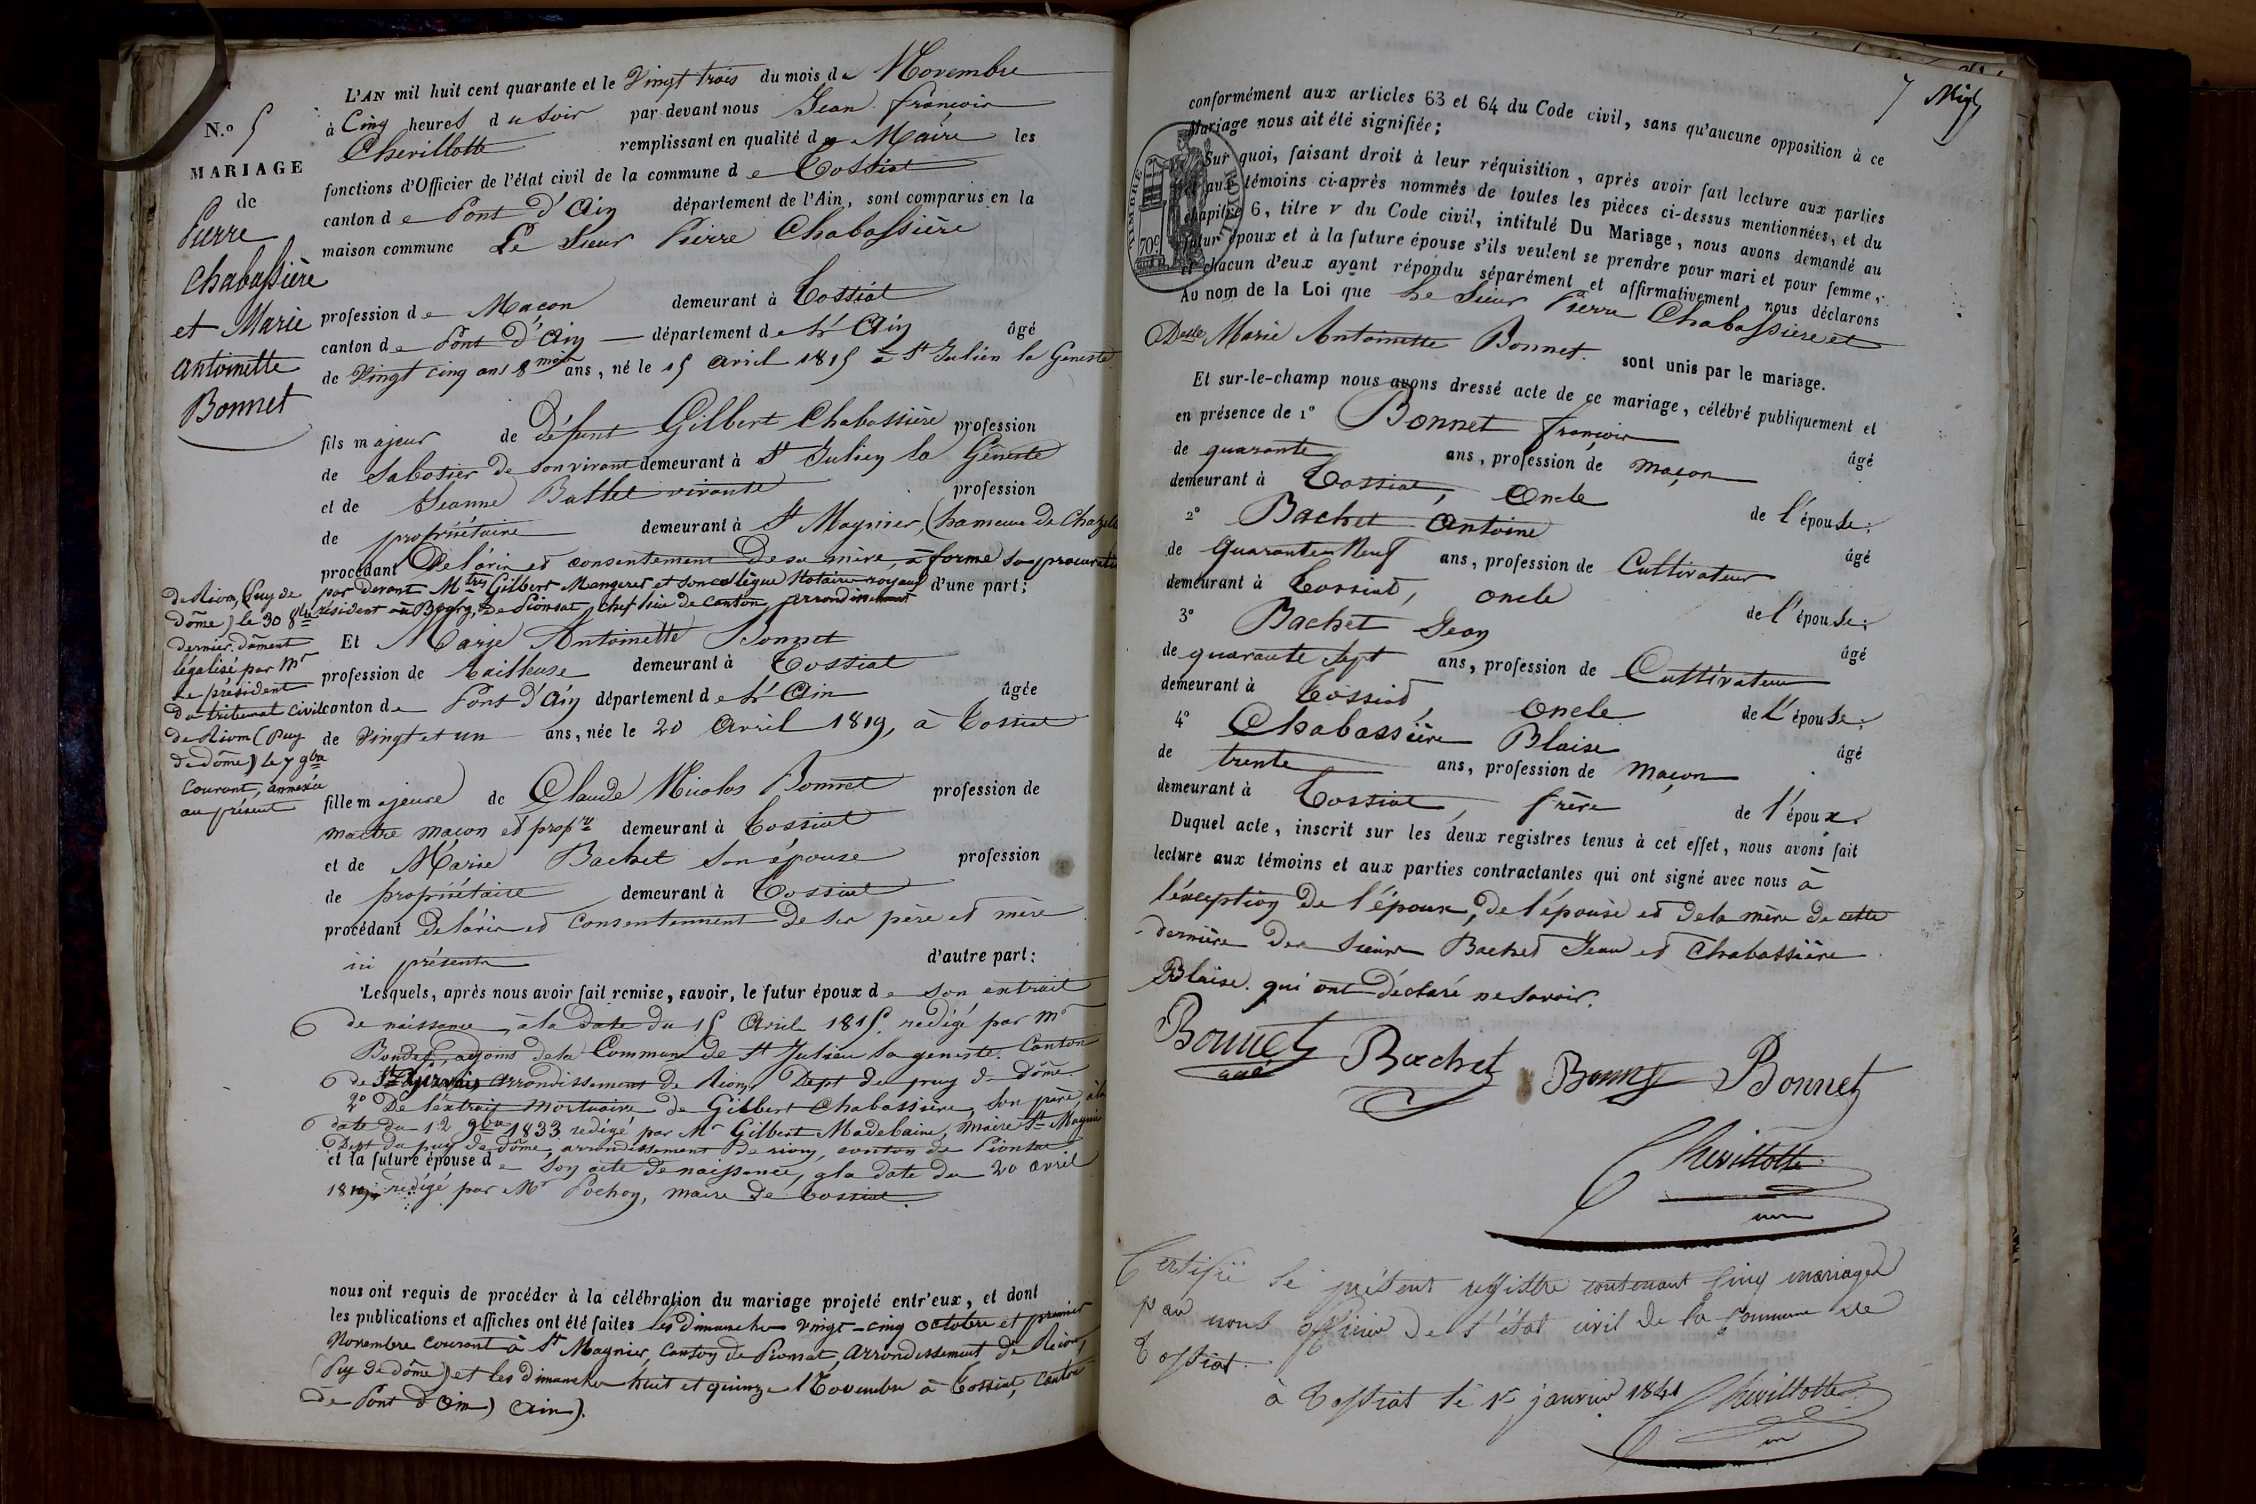 N.º 5
MARIAGE
de
Pierre
Chabassière
et Marie
antoinette
Bonnet
L'AN mil huit cent quarante et le Vingt trois du mois de Novembre
à Cinq heures du Soir par devant nous Jean françois
Chevillotte remplissant en qualité de Maire les
fonctions d'Officier de l'état civil de la commune de Tossiat
canton de Pont d'Ain département de l'Ain, sont comparus en la
maison commune Le Sieur Pierre Chabassière
profession de Maçon demeurant à Tossiat
canton de Pont d'Ain département de l'Ain âgé
de Vingt cinq ans 8 mois ans, né le 15 avril 1815 à St Julien la Geneste
fils majeur de défunt Gilbert Chabassière profession
de Sabotier de son vivant demeurant à St Julien la Géneste
et de Jeanne Ballet vivante profession
de propriétaire demeurant à St Magnier, (hameau de Chazel
procédant De l'avis et consentement De sa mère, à forme sa procuration
par devant Mtres Gilbert Mangeret et son collègue Notaire royaux d'une part;
résident de Pionsat, chef lieu de canton, arrondissement
de Riom, (Puy de
dôme) le 30 8bre
dernier. dûment
légalisé par Mr
le président
du tribunal civil
de Riom (Puy
de dôme) le 7 9bre
Courant, annexée
au présent
Et Marie Antoinette Bonnet
profession de tailleuse demeurant à Tossiat
canton de Pont d'Ain département de l'Ain âgée
de Vingt et un ans, née le 20 avril 1819, à Tossiat
fille majeure de Claude Nicolas Bonnet profession de
maître maçon et propre demeurant à Tossiat
et de Marie Bachet son épouse profession
de propriétaire demeurant à Tossiat
procédant De l'avis et Consentement De ses père et mère
ici présents d'autre part:
Lesquels, après nous avoir fait remise, savoir, le futur époux de son extrait
de naissance, à la date du 15 Avril 1815. redigé par Mr
adjoint de la Commune de St Julien la geneste. Canton
de St Gervais arrondissement de Riom Dept du puy de Dôme
2º De l'extrait mortuaire de Gilbert Chabassière, son père, à la
date du 12 9bre 1833 redigé par Mr Gilbert Madebaine, maire St Magnier
Dept du puy de dôme, arrondissement De riom, canton de Pionsat.
et la future épouse de son acte de naissance, à la date du 20 avril
1819, redigé par Mr Pochon, maire de Tossiat.
nous ont requis de procéder à la célébration du mariage projeté entr'eux, et dont
les publications et affiches ont été faites les dimanche vingt-cinq octobre et premier
Novembre courant à St Magnier, canton de Pionsat, Arrondissement de Riom,
(Puy de dôme) et les dimanches huit et quinze Novembre à Tossiat, canton
de Pont d'Ain) (Ain).
7
conformément aux articles 63 et 64 du Code civil, sans qu'aucune opposition à ce
Mariage nous ait été signifiée;
TIMBRE ROYAL
70c
Sur quoi, faisant droit à leur réquisition, après avoir fait lecture aux parties
et aux témoins ci-après nommés de toutes les pièces ci-dessus mentionnées, et du
chapitre 6, titre v du Code civil, intitulé Du Mariage, nous avons demandé au
futur époux et à la future épouse s'ils veulent se prendre pour mari et pour femme;
et chacun d'eux ayant répondu séparément et affirmativement, nous déclarons
Au nom de la Loi que Le Sieur Pierre Chabassière et
Delle Marie Antoinette Bonnet. sont unis par le mariage.
Et sur-le-champ nous avons dressé acte de ce mariage, célébré publiquement et
en présence de 1º Bonnet françois âgé
de quarante ans, profession de maçon
demeurant à Tossiat, Oncle de l'épouse;
2º Bachet Antoine âgé
de Quarante Neuf ans, profession de Cultivateur
demeurant à Tossiat, oncle de l'épouse;
3º Bachet Jean âgé
de quarante sept ans, profession de Cultivateur
demeurant à Tossiat, Oncle de l'épouse;
4º Chabassière Blaise âgé
de trente ans, profession de maçon
demeurant à Tossiat, frère de l'époux.
Duquel acte, inscrit sur les deux registres tenus à cet effet, nous avons fait
lecture aux témoins et aux parties contractantes qui ont signé avec nous à
l'exception De l'époux, de l'épouse et de la mère de cette
dernière des Sieurs Bachet Jean et Chabassière
Blaise. qui ont déclaré ne savoir.
Bonnet Bachet Bonnet Bonnet
Chevillotte
Certifié le présent registre contenant Cinq mariages
par nous officier De l'état civil de la Commune de
Tossiat.
à Tossiat le 1er janvier 1841 Chevillotte